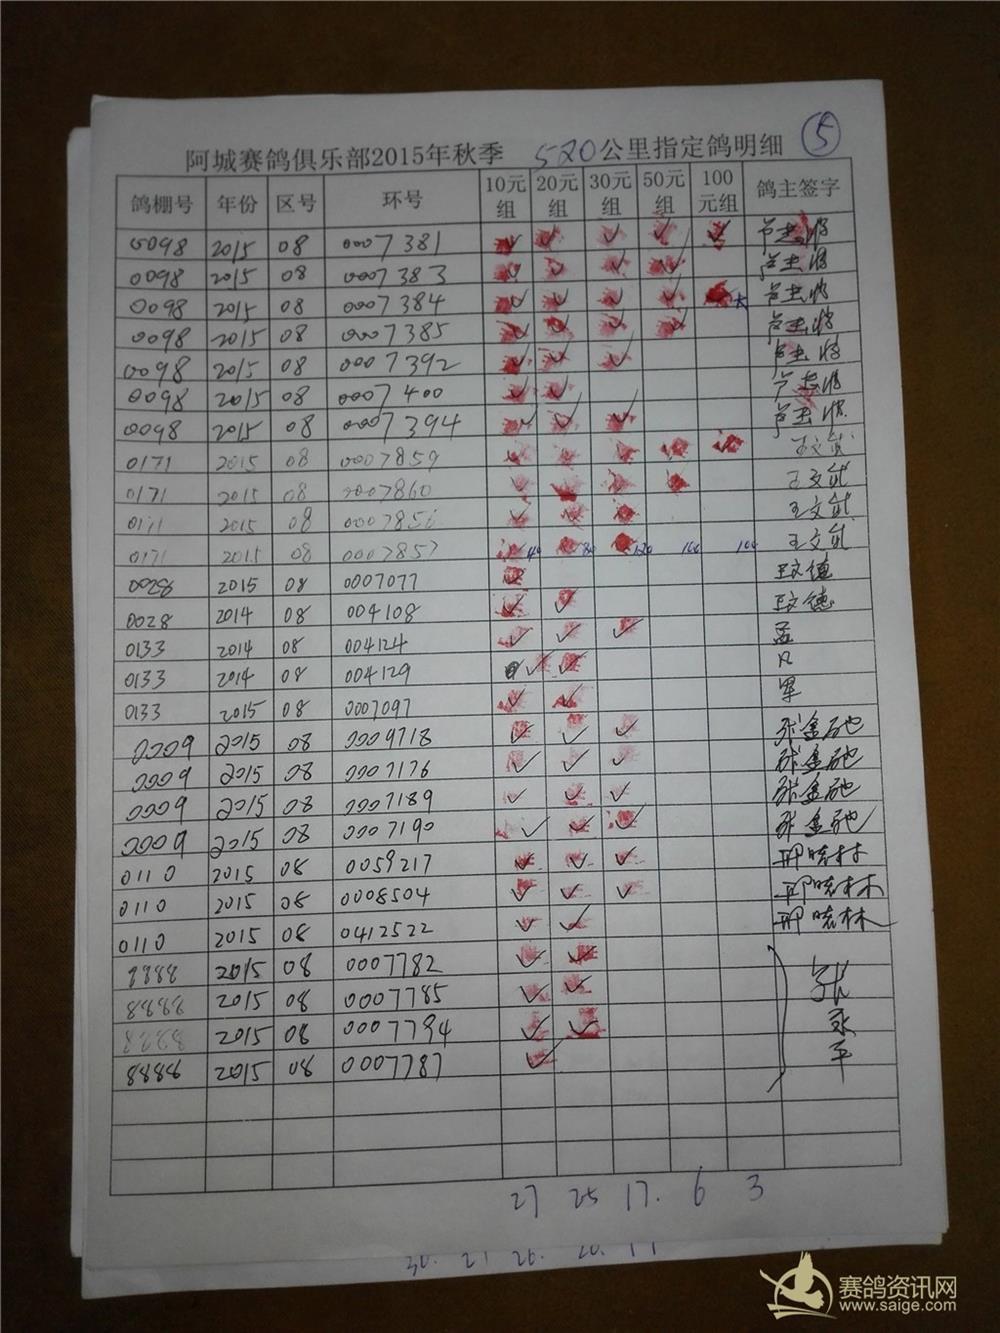 ⑤
阿城赛鸽俱乐部2015年秋季 520公里指定鸽明细
鸽棚号 年份 区号 环号 10元组 20元组 30元组 50元组 100元组 鸽主签字
0098 2015 08 0007381 ✓ ✓ ✓ ✓ ✓
0098 2015 08 0007383 ✓ ✓ ✓ ✓
0098 2015 08 0007384 ✓ ✓ ✓ ✓
0098 2015 08 0007385 ✓ ✓ ✓ ✓
0098 2015 08 0007392 ✓ ✓ ✓
0098 2015 08 0007400 ✓ ✓
0098 2015 08 0007394 ✓ ✓ ✓
0171 2015 08 0007859 王文
0171 2015 08 0007860 王文
0171 2015 08 0007856 王文
0171 2015 08 0007857 王文
0028 2015 08 0007077 王文德
0028 2014 08 004108 ✓ ✓ 王文德
0133 2014 08 004124 ✓ ✓ ✓ 孟
0133 2014 08 004129 ✓ ✓ 凡
0133 2015 08 0007097 ✓ ✓ 军
0009 2015 08 0009718 ✓ ✓ ✓ 张金
0009 2015 08 0007176 ✓ ✓ ✓ 张金
0009 2015 08 0007189 ✓ ✓ ✓ 张金
0009 2015 08 0007190 ✓ ✓ ✓ 张金
0110 2015 08 0059217 ✓ ✓ ✓ 邢晓林
0110 2015 08 0008504 ✓ ✓ ✓ 邢晓林
0110 2015 08 0412522 ✓ ✓ 邢晓林
8888 2015 08 0007782 ✓ ✓ 张永平
8888 2015 08 0007785 ✓ ✓
8888 2015 08 0007794 ✓ ✓
8888 2015 08 0007787 ✓
27 25 17. 6 3
30. 21 26. 20. 11
赛鸽资讯网
www.saige.com